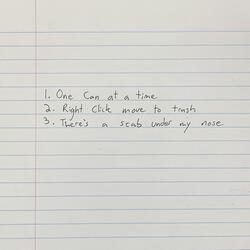 1. One Can at a time
2. Right Click move to trash
3. There's a scab under my nose